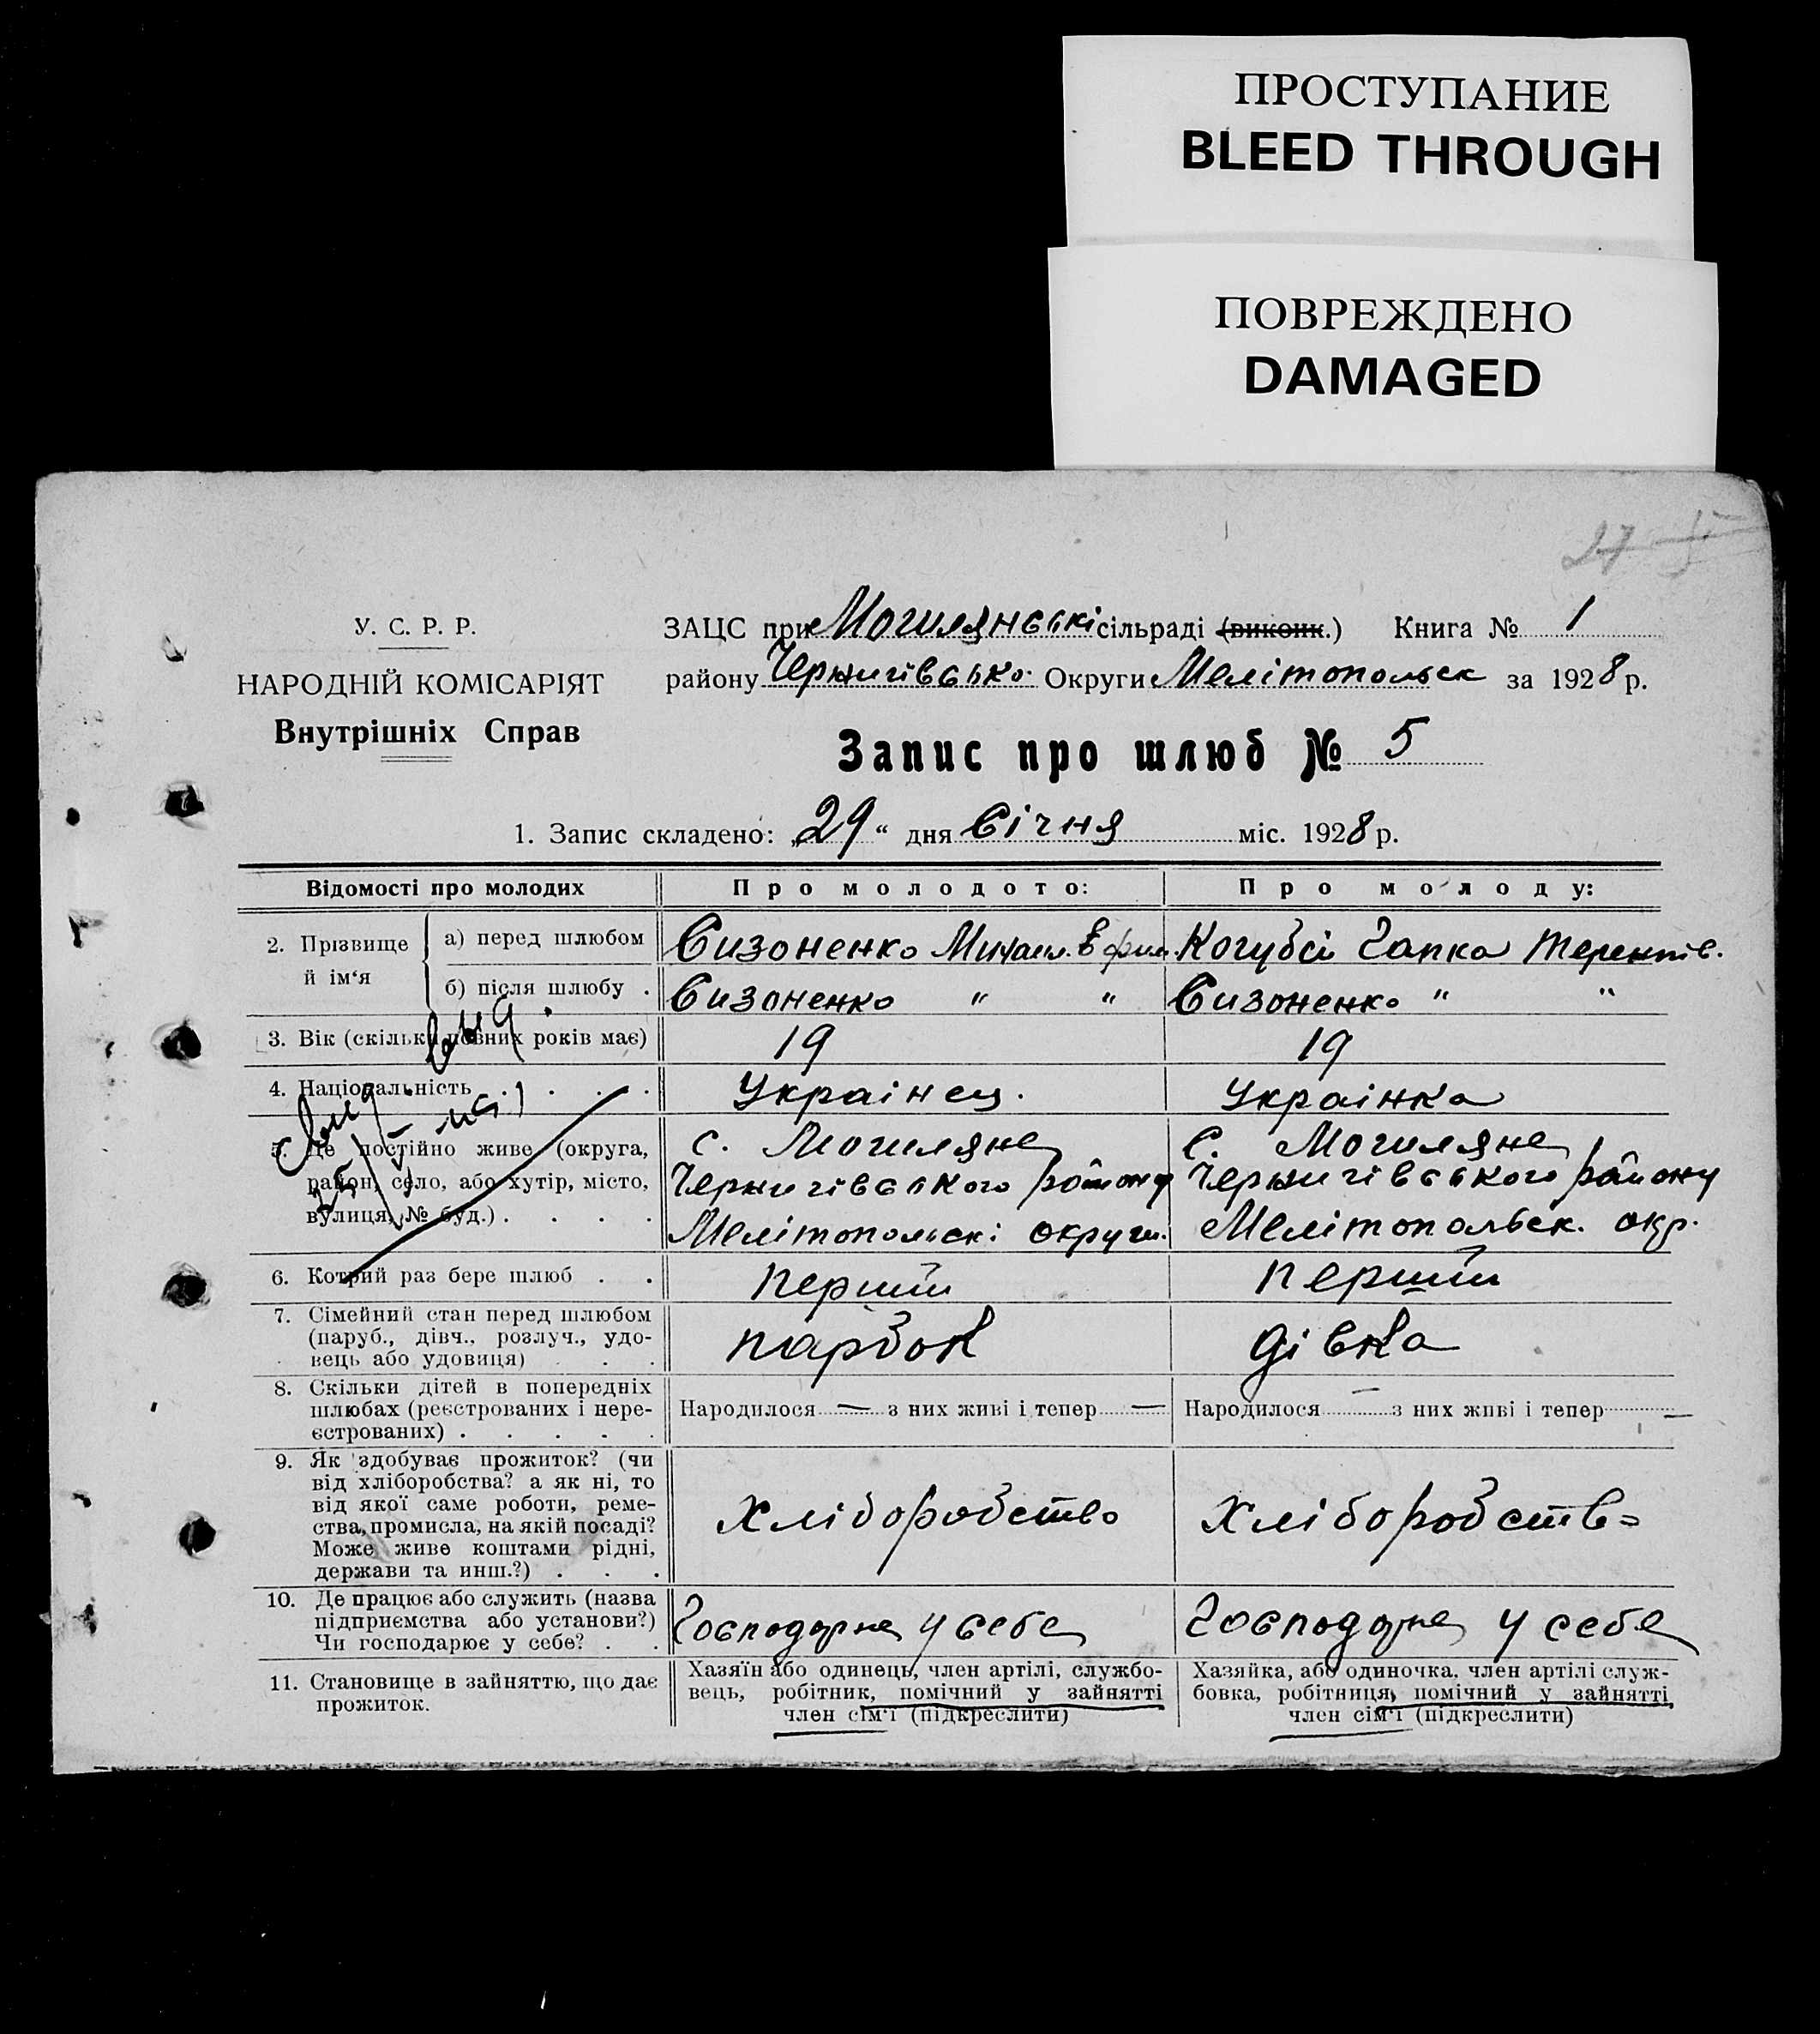 ПРОСТУПАНИЕ
BLEED THROUGH
ПОВРЕЖДЕНО
DAMAGED
27
У. С. Р. Р.
НАРОДНІЙ КОМІСАРІЯТ
Внутрішніх Справ
ЗАЦС при Могилянські сільраді (виконк.) Книга № 1
району Чернигівсько Округи Мелітопольск за 1928 р.
Запис про шлюб № 5
1. Запис складено: „29“ дня Січня міс. 1928 р.
Відомості про молодих
Про молодого:
Про молоду:
2. Прізвище й ім‘я
а) перед шлюбом
Сизоненко Михаил. Ефим.
Когубсі Гапка Терентів.
б) після шлюбу .
Сизоненко " "
Сизоненко " "
3. Вік (скільки повних років має)
19
19
4. Національність . . . .
Українец.
Українка
5. Де постійно живе (округа,
район, село, або хутір, місто,
вулиця, № буд.) . . . .
с. Могиляне
Чернигівського району
Мелітопольскі округи.
С. Могиляне
Чернигівського району
Мелітопольск. окр.
6. Котрий раз бере шлюб . .
перший
перший
7. Сімейний стан перед шлюбом
(паруб., дівч., розлуч., удо-
вець або удовиця) . . .
парбок
дівка
8. Скільки дітей в попередніх
шлюбах (реєстрованих і нере-
єстрованих) . . . . .
Народилося — з них живі і тепер —
Народилося — з них живі і тепер —
9. Як здобуває прожиток? (чи
від хліборобства? а як ні, то
від якої саме роботи, реме-
ства, промисла, на якій посаді?
Може живе коштами рідні,
держави та инш.?) . . .
Хліборобство
Хліборобство
10. Де працює або служить (назва
підприємства або установи?)
Чи господарює у себе? . .
Господарне у себе
Господарне у себе
11. Становище в зайняттю, що дає
прожиток.
Хазяїн або одинець, член артілі, службо-
вець, робітник, помічний у зайнятті
член сім‘ї (підкреслити)
Хазяйка, або одиночка, член артілі служ-
бовка, робітниця, помічний у зайнятті
член сім‘ї (підкреслити)